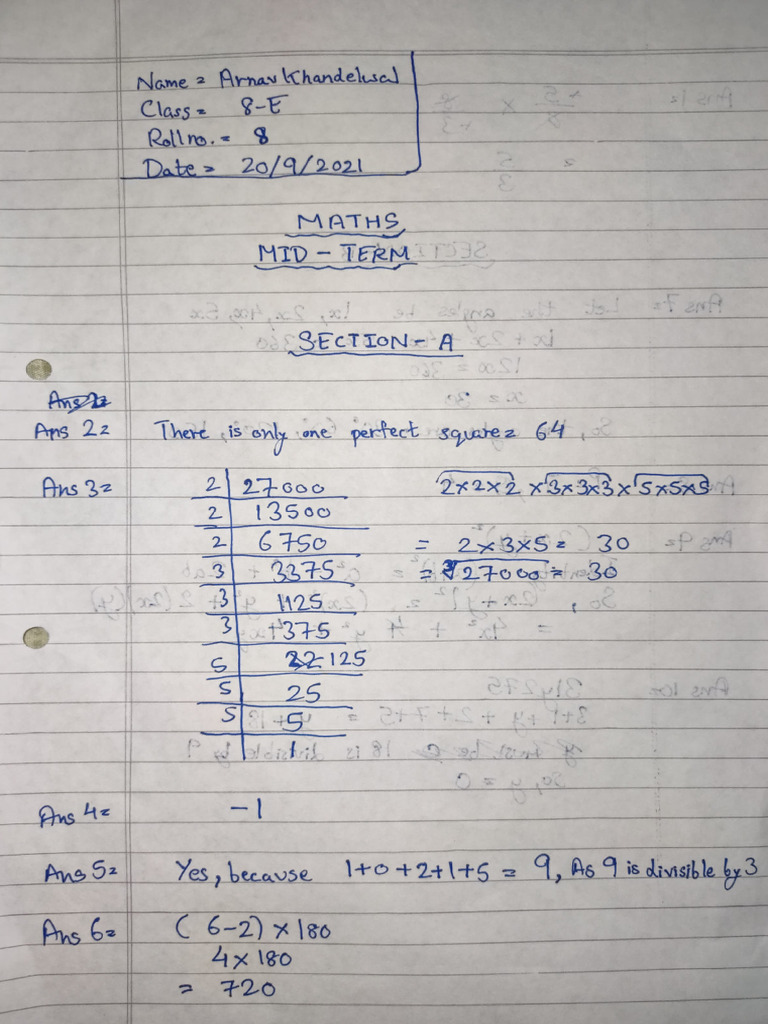 Name = Arnav Khandelwal
Class = 8-E
Roll no. = 8
Date = 20/9/2021
MATHS
MID - TERM
SECTION - A
Ans 2= There is only one perfect square= 64
Ans 3=
2 | 27000
2 | 13500
2 | 6750
3 | 3375
3 | 1125
3 | 375
5 | 125
5 | 25
5 | 5
1
2×2×2 ×3×3×3×5×5×5
= 2×3×5= 30
= ∛27000 = 30
Ans 4= -1
Ans 5= Yes, because 1+0+2+1+5 = 9, As 9 is divisible by 3
Ans 6= (6-2) × 180
4×180
= 720